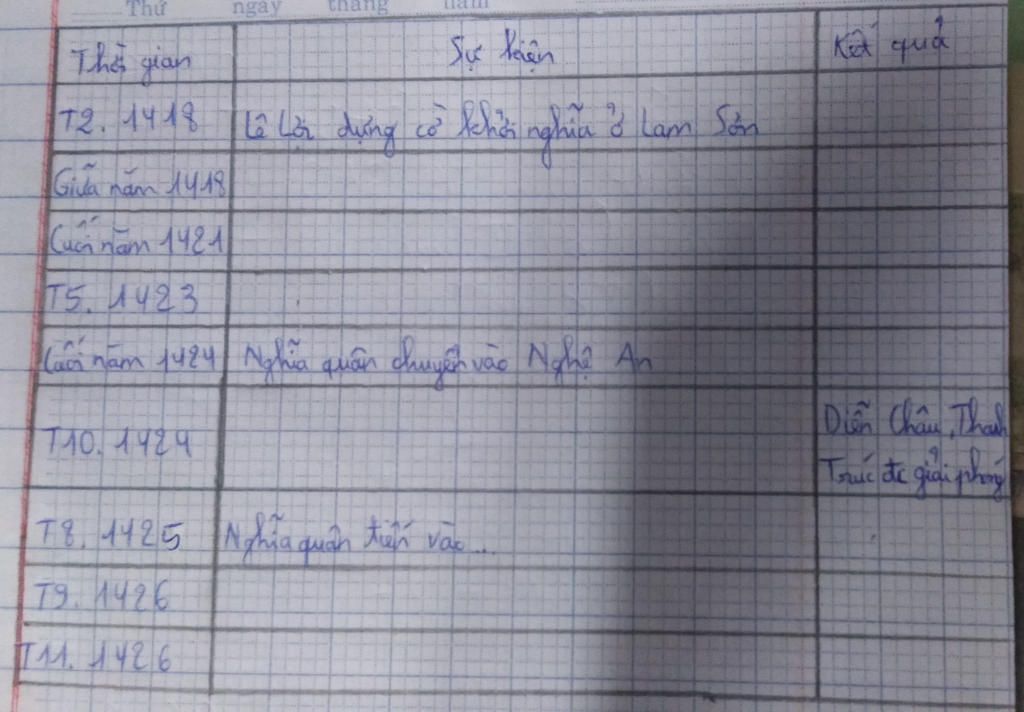 Thứ ngày tháng năm
Thời gian Sự kiện Kết quả
T2. 1418 Lê Lợi dựng cờ khởi nghĩa ở Lam Sơn
Giữa năm 1418
Cuối năm 1421
T5. 1423
Cuối năm 1424 Nghĩa quân chuyển vào Nghệ An
T10. 1424 Diễn Châu, Thanh
Trúc đc giải phóng
T8. 1425 Nghĩa quân tiến vào...
T9. 1426
T11. 1426